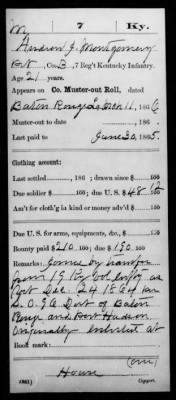 M 7 Ky.
Andrew J. Montgomery
Pvt, Co. B, 7 Reg't Kentucky Infantry.
Age 21 years.
Appears on Co. Muster-out Roll, dated
Baton Rouge La Mch 11, 1866
Muster-out to date , 186 .
Last paid to June 30, 1865.
Clothing account:
Last settled , 186 ; drawn since $ 100
Due soldier $ 100; due U. S. $ 48
Am't for cloth'g in kind or money adv'd $ 100
Due U. S. for arms, equipments, &c., $ 100
Bounty paid $ 210 100; due $ 190 100
Remarks: Joined by transfer
from 19 Ky Vol Infy as
Pvt Dec 24 1864 in
S.O. Dept of Baton
Rouge and Port Hudson
Originally enlisted at
Book mark:
(over)
House
(361) Copyist.